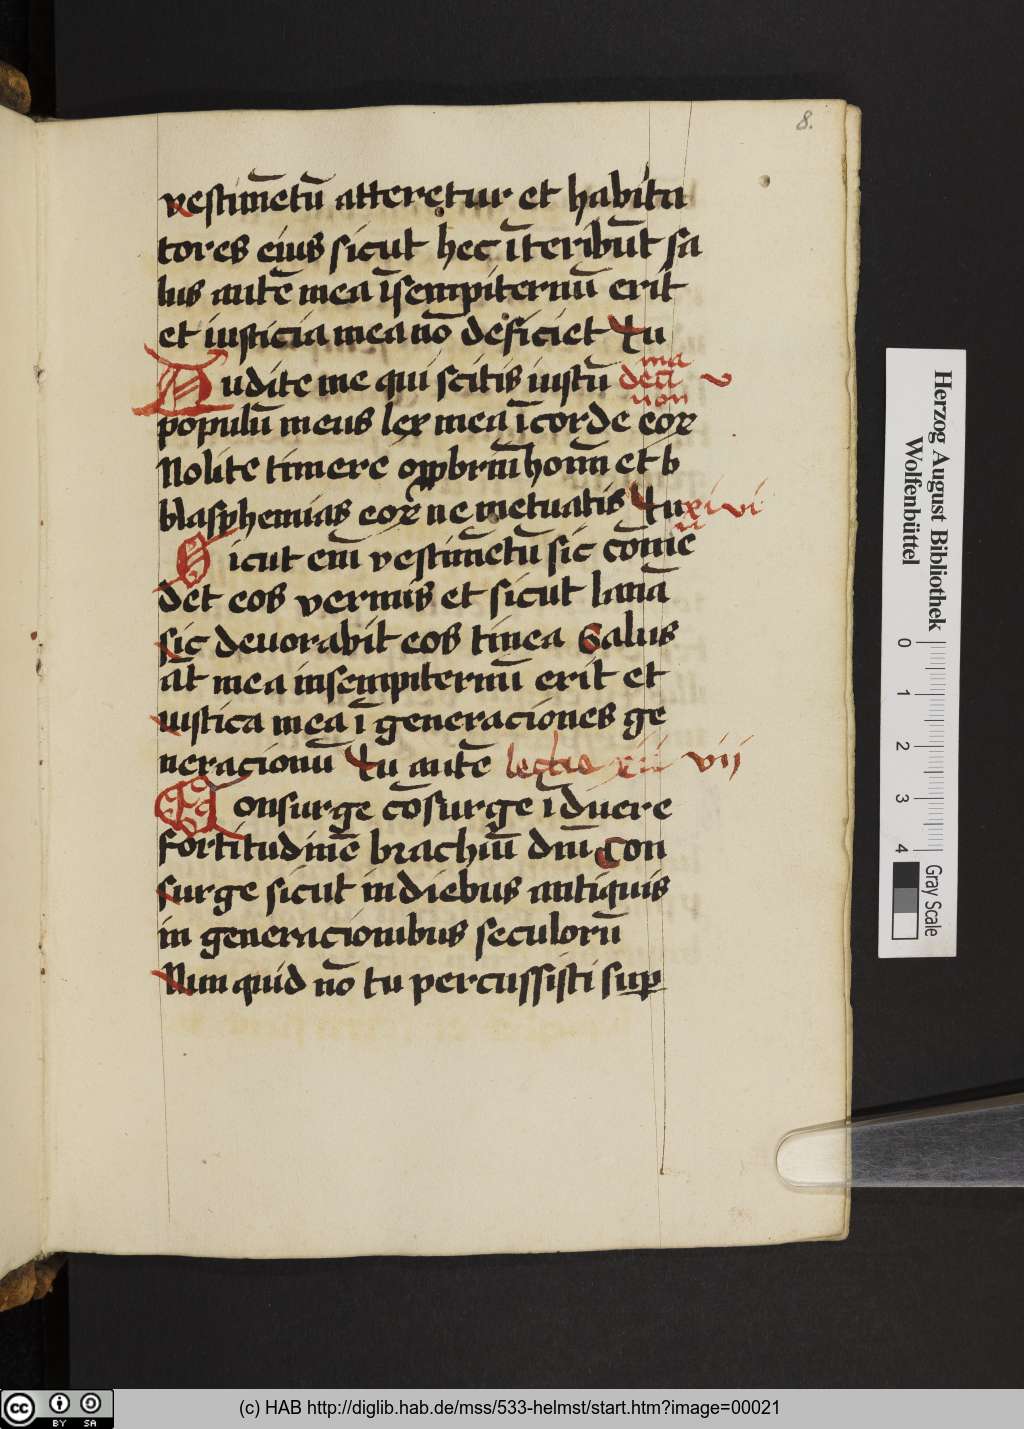 8.
vestim̄etū atteretur et habita
tores eius sicut hec īteribūt sa
lus autē mea īsempiternū erit
et iusticia mea nō deficiet Tu
Audite me qui scitis iustū
ma
decī v
non
populus meus lex mea ī corde eoꝝ
Nolite timere opprbriū hoīm et b
blasphemias eoꝝ ne metuatis Tu xi vi
Sicut enī vestim̄etū sic comē
det eos vermis et sicut lanā
sic deuorabit eos tinea Salus
āt mea insempiternū erit et
iustica mea ī generaciones ge
neracionū Tu autē lectio vii
Consurge cōsurge īduere
fortitudinē brachiū dnī Con
surge sicut indiebus antiquis
in generacionibus seculorū
Nunquid nō tu percussisti suꝑ
Herzog August Bibliothek
Wolfenbüttel
0 1 2 3 4
Gray Scale
cc BY SA
(c) HAB http://diglib.hab.de/mss/533-helmst/start.htm?image=00021